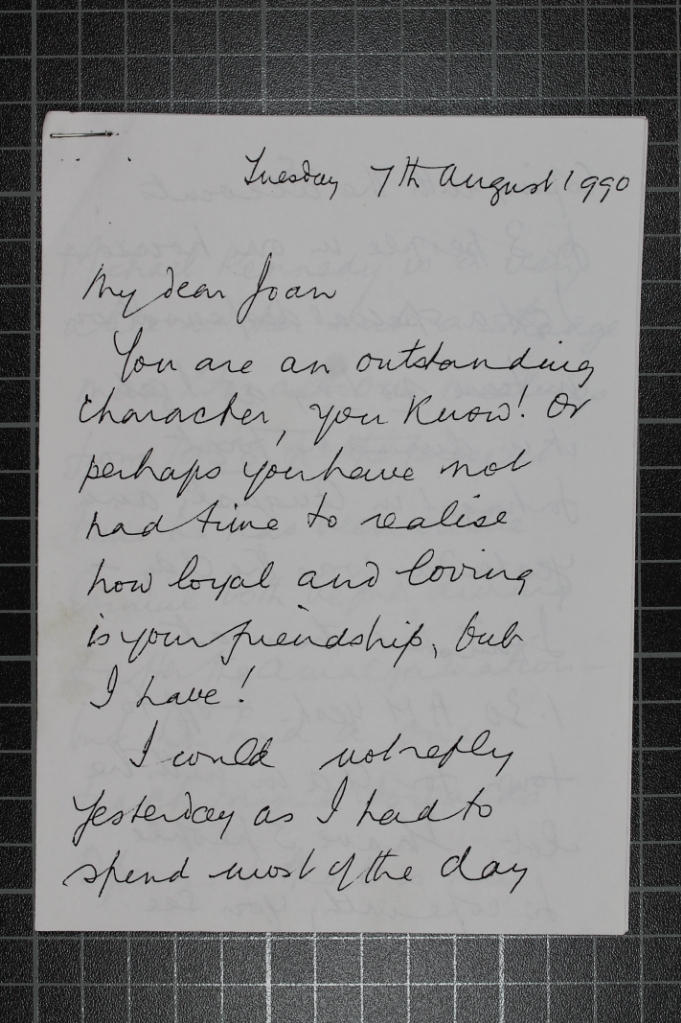 Tuesday 7th August 1990
My dear Joan
You are an outstanding
character, you know! Or
perhaps you have not
had time to realise
how loyal and loving
is your friendship, but
I have!
I could not reply
yesterday as I had to
spend most of the day